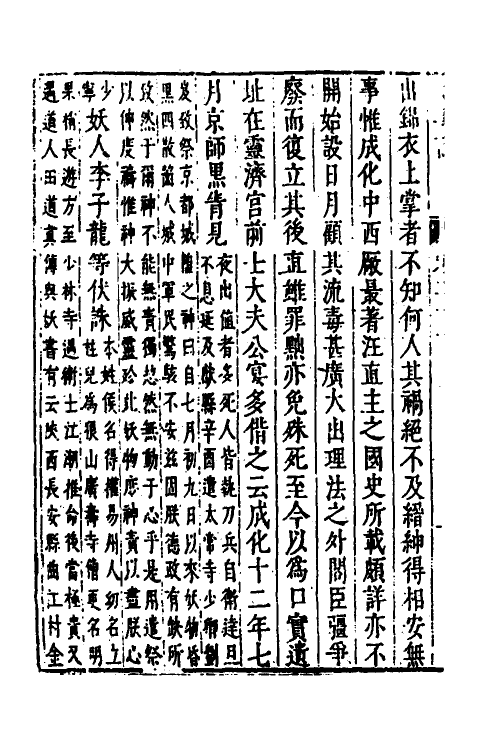 出錦衣上掌者不知何人其禍絕不及縉紳得相安無
事惟成化中西厰最著汪直主之國史所載頗詳亦不
開始設日月顧其流毒甚廣大出理法之外閣臣彊爭
廢而復立其後直雖罪黜亦免殊死至今以為口實遺
址在靈濟宮前士大夫公宴多借之云成化十二年七
月京師黑眚見夜出値者多死人皆執刀兵自衛達旦
不息延及献縣辛酉遣太常寺少卿劉
岌致祭京都城隍之神曰自七月初九日以來妖物昏
黑四散傷人城中軍民驚駭不安茲因朕德政有缺所
致然于爾神不能無責獨恝然無動于心乎是用遣祭
以伸虔禱惟神大振威靈殄此妖物庶神責以盡朕心
少寧妖人李子龍等伏誅本姓侯名得權易州人幼名立
柱兒為狼山廣壽寺僧更名明
果稍長遊方至少林寺遇術士江潮推命後當極貴又
遇道人田道真傳與妖書有云陜西長安縣曲江村金